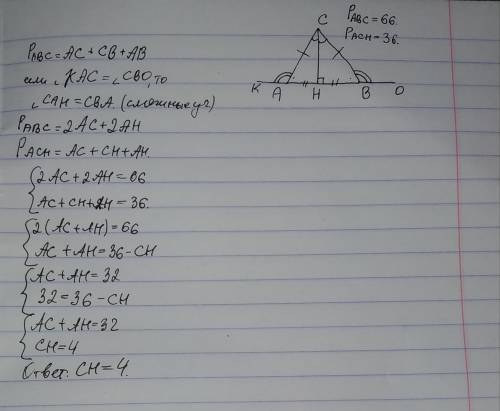 C
P_ABC = 66.
P_ACH = 36.
K A H B O
P_ABC = AC + CB + AB
если ∠KAC = ∠CBO, то
∠CAH = CBA. (смежные уг)
P_ABC = 2AC + 2AH
P_ACH = AC + CH + AH.
{ 2AC + 2AH = 66
AC + CH + AH = 36.
{ 2(AC + AH) = 66
AC + AH = 36 - CH
{ AC + AH = 32
32 = 36 - CH
{ AC + AH = 32
CH = 4
Ответ: CH = 4.